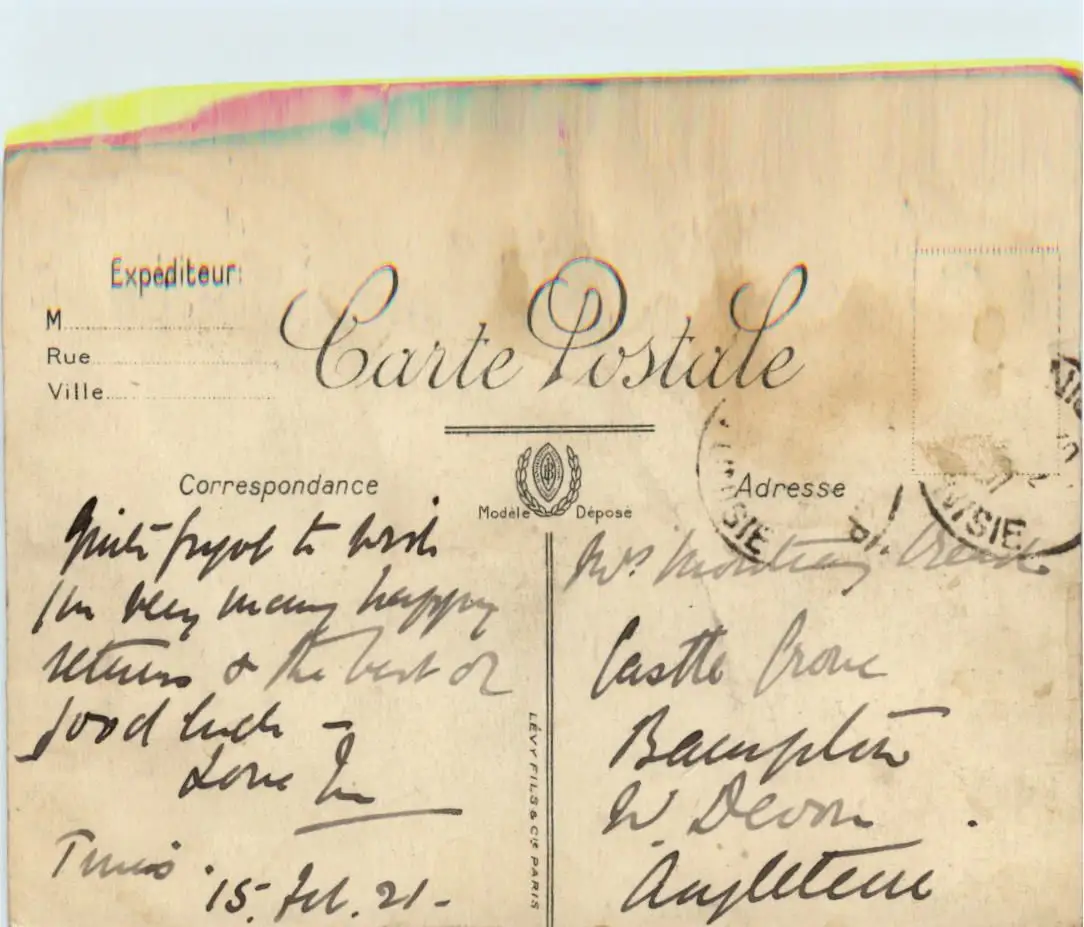 Expéditeur:
M
Rue
Ville
Carte Postale
Correspondance
Modèle Déposé
Adresse
TUNISIE
Quite forgot to wish
you very many happy
returns & the best of
good luck —
Love
Tunis.
15. Feb. 21 -
LÉVY FILS & Cie PARIS
Mrs
Castle Grove
Bampton
N. Devon
Angleterre